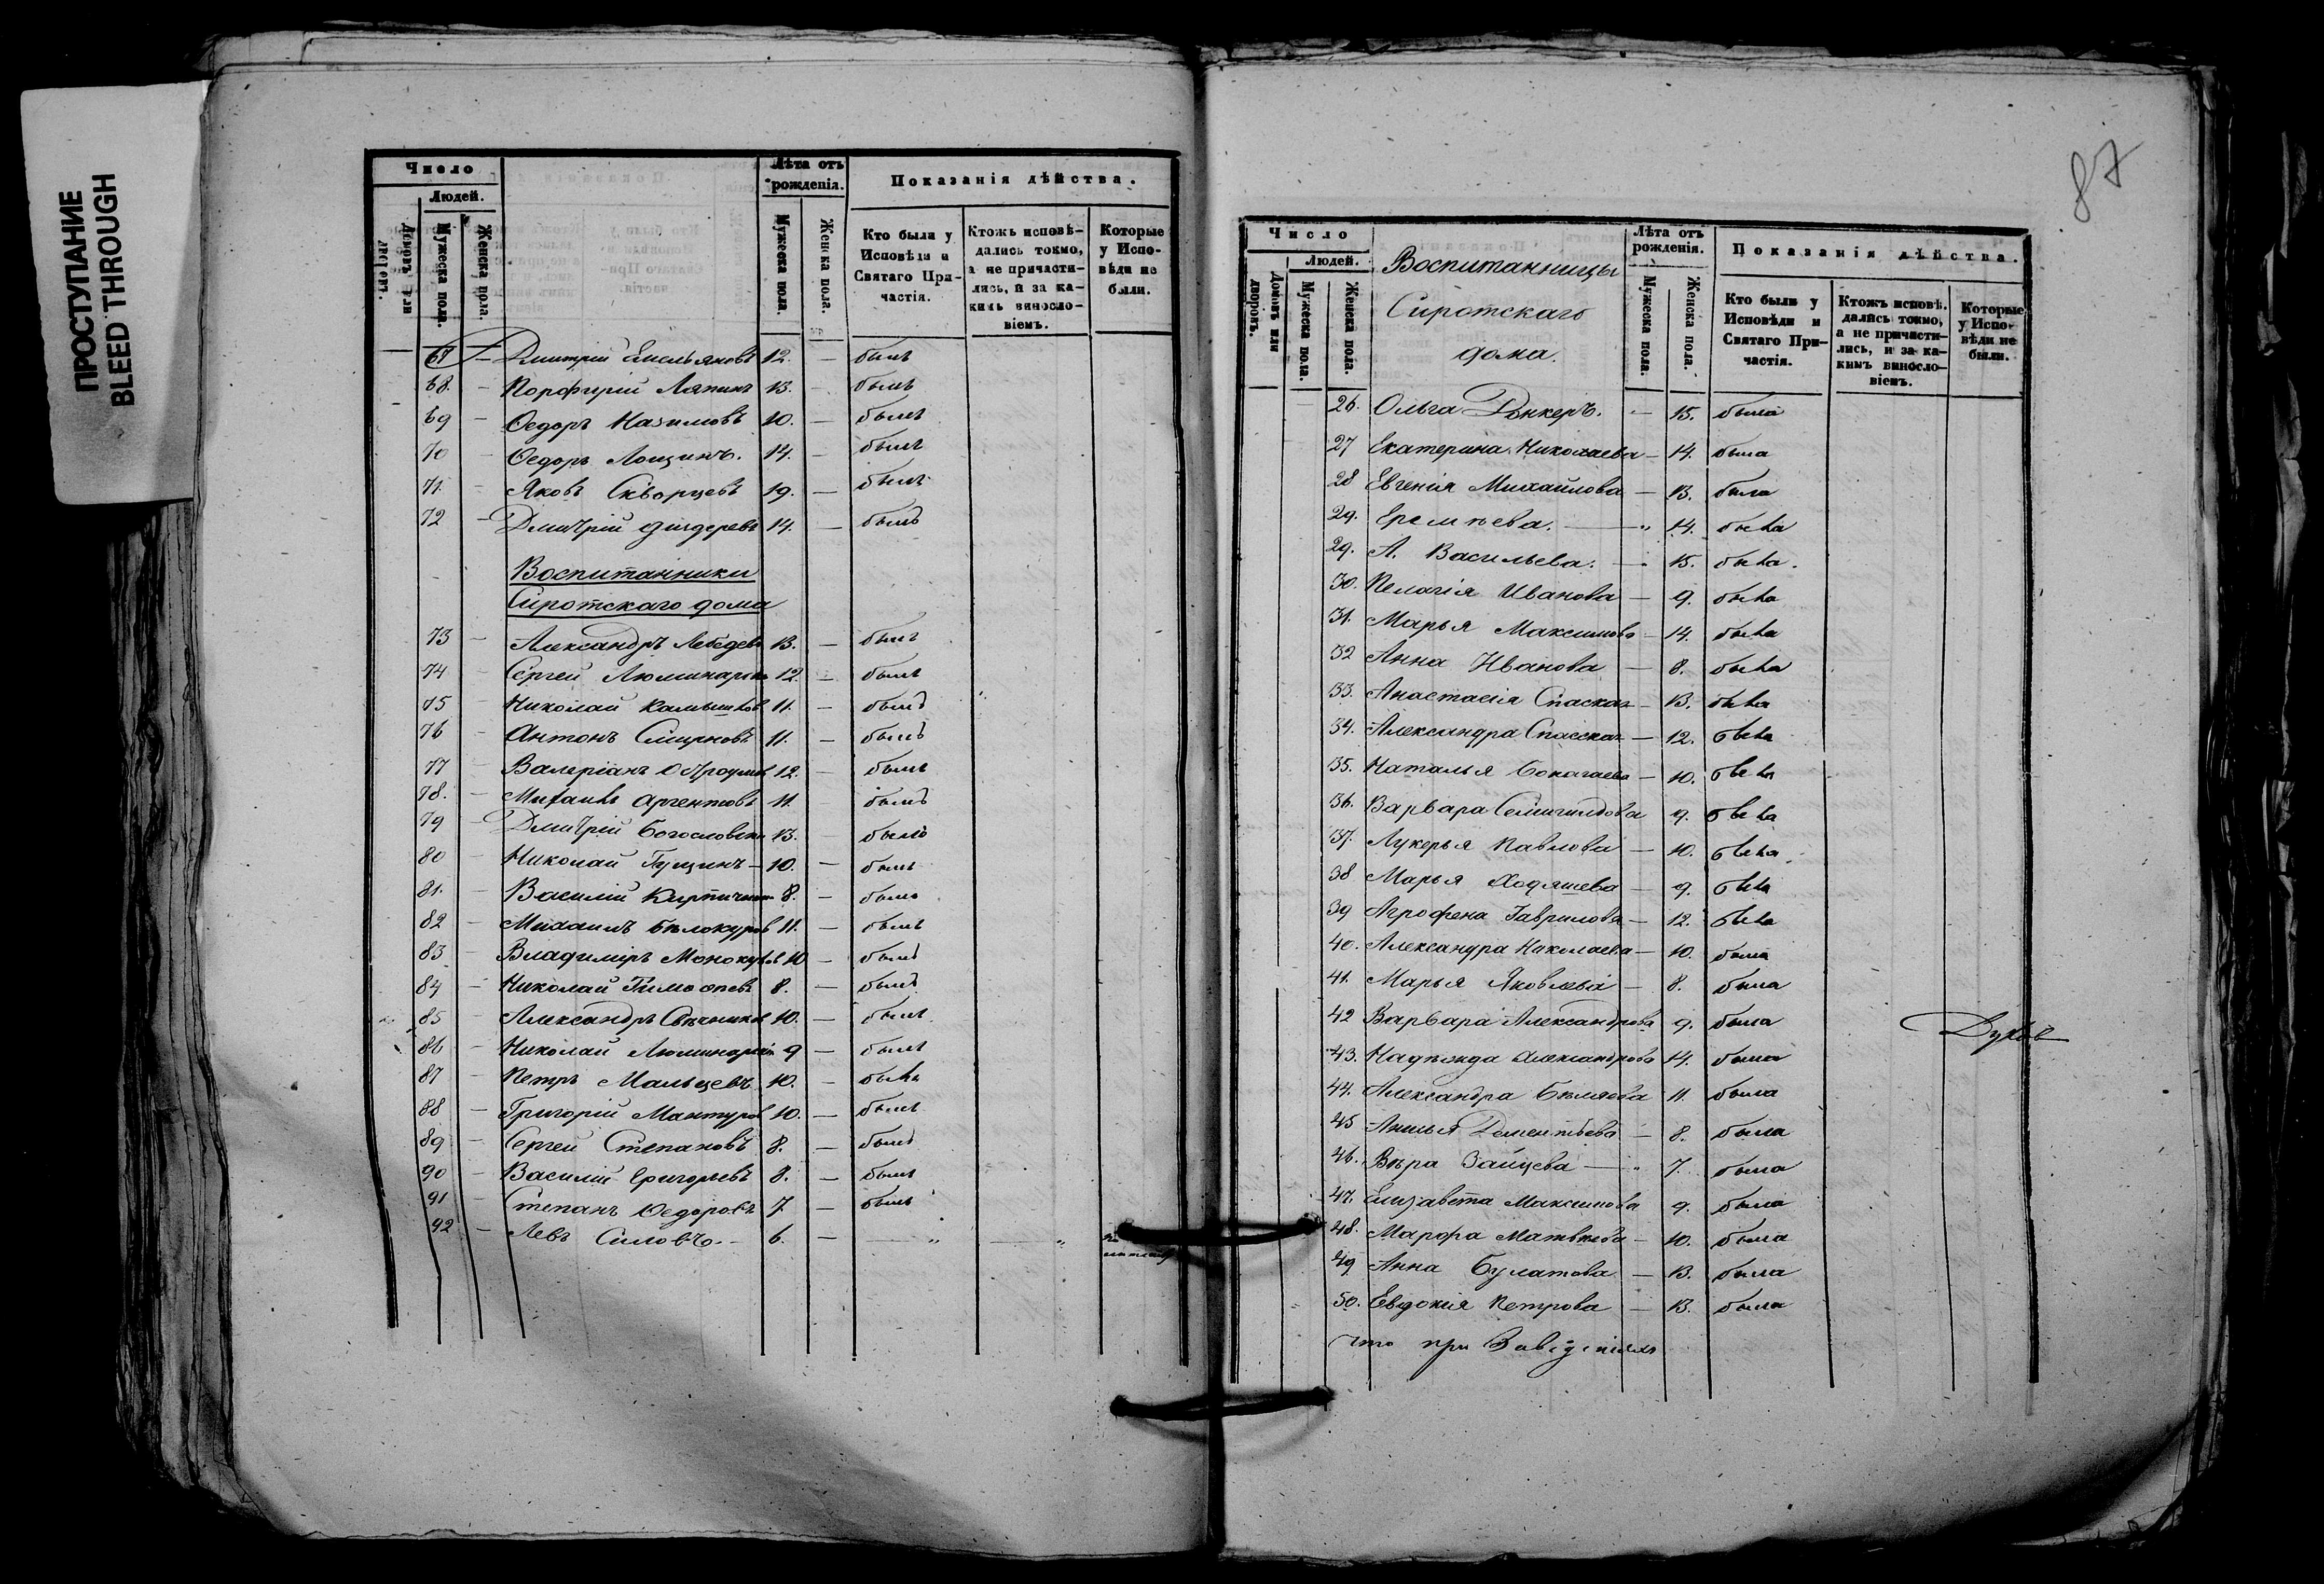 ПРОСТУПАНИЕ
BLEED THROUGH
Число
Людей.
Домовъ или дворовъ.
Мужеска пола.
Женска пола.
Лѣта отъ рожденія.
Мужеска пола.
Женска пола.
Показанія дѣйства.
Кто были у Исповѣди и Святаго Причастія.
Ктожъ исповѣдались токмо, а не причастились, и за какимъ винословіемъ.
Которые у Исповѣди не были.
67 — Дмитрій Емельяновъ 12. — былъ
68. — Порфирій Ляпинъ 13. — былъ
69 — Ѳедоръ Назимовъ 10. — былъ
70 — Ѳедоръ Лощинъ. 14. — былъ
71. — Яковъ Скворцевъ 19. — былъ
72 — Дмитрій 14. — былъ
Воспитанники
Сиротскаго дома
73 — Александръ Лебедевъ 13. — былъ
74 — Сергей Люминарскій 12. — былъ
75 — Николай Камышков 11. — былъ
76 — Антонъ Смирновъ 11. — былъ
77 — Валеріанъ 12. — былъ
78. — Михаилъ Аргентовъ 11. — былъ
79 — Дмитрій Богословскій 13. — былъ
80 — Николай Гущинъ — 10. — былъ
81. — Василій 8. — былъ
82 — Михаилъ Бѣлокуров 11. — былъ
83 — Владимиръ 10 — былъ
84 — Николай Тимоѳеевъ 8. — былъ
85 — Александръ Свѣчников 10. — былъ
86 — Николай Люминарскій 9 — былъ
87 — Петръ Мальцевъ 10. — былъ
88 — Григорій Мантуров 10. — былъ
89 — Сергей Степановъ 8. — былъ
90 — Василій Григорьевъ 8. — былъ
91 — Степанъ Ѳедоровъ 7. — былъ
92 — Левъ Силовъ. — 6. — — „ — „
87
Число
Людей.
Домовъ или дворовъ.
Мужеска пола.
Женска пола.
Воспитанницы
Сиротскаго
дома.
Лѣта отъ рожденія.
Мужеска пола.
Женска пола.
Показанія дѣйства.
Кто были у Исповѣди и Святаго Причастія.
Ктожъ исповѣдались токмо, а не причастились, и за какимъ винословіемъ.
Которые у Исповѣди не были.
26. Ольга — 15. была
27 Екатерина Николаева — 14. была
28 Евгенія Михайлова — 13. была
29. Еремѣева. — „ 14. была
29. А. Васильева. — 15. была.
30. Пелагія Иванова — 9. была
31. Марья Максимова — 14. была
32 Анна Иванова — 8. была
33. Анастасія Спаская — 13. была
34. Александра Спасская — 12. была
35. Наталья — 10. была
36. Варвара 9. была
37. Лукерья Павлова — 10. была
38 Марья Ходяшева — 9. была
39 Агрофена Гаврилова — 12. была
40. Александра Николаева — 10. была
41. Марья Яковлева — 8. была
42 Варвара Александрова 9. была
43. Надѣжда Александрова 14. была
44. Александра Бѣляева 11. была
45 Дементьева — 8. была
46. Вѣра Зайцева — „ 7. была
47. Елизавета Максимова 9. была
48. Марѳа Матвѣева — 10. была
49 Анна Булатова — 13. была
50. Евдокія Петрова — 13. была
что при Заведеніяхъ
Духов